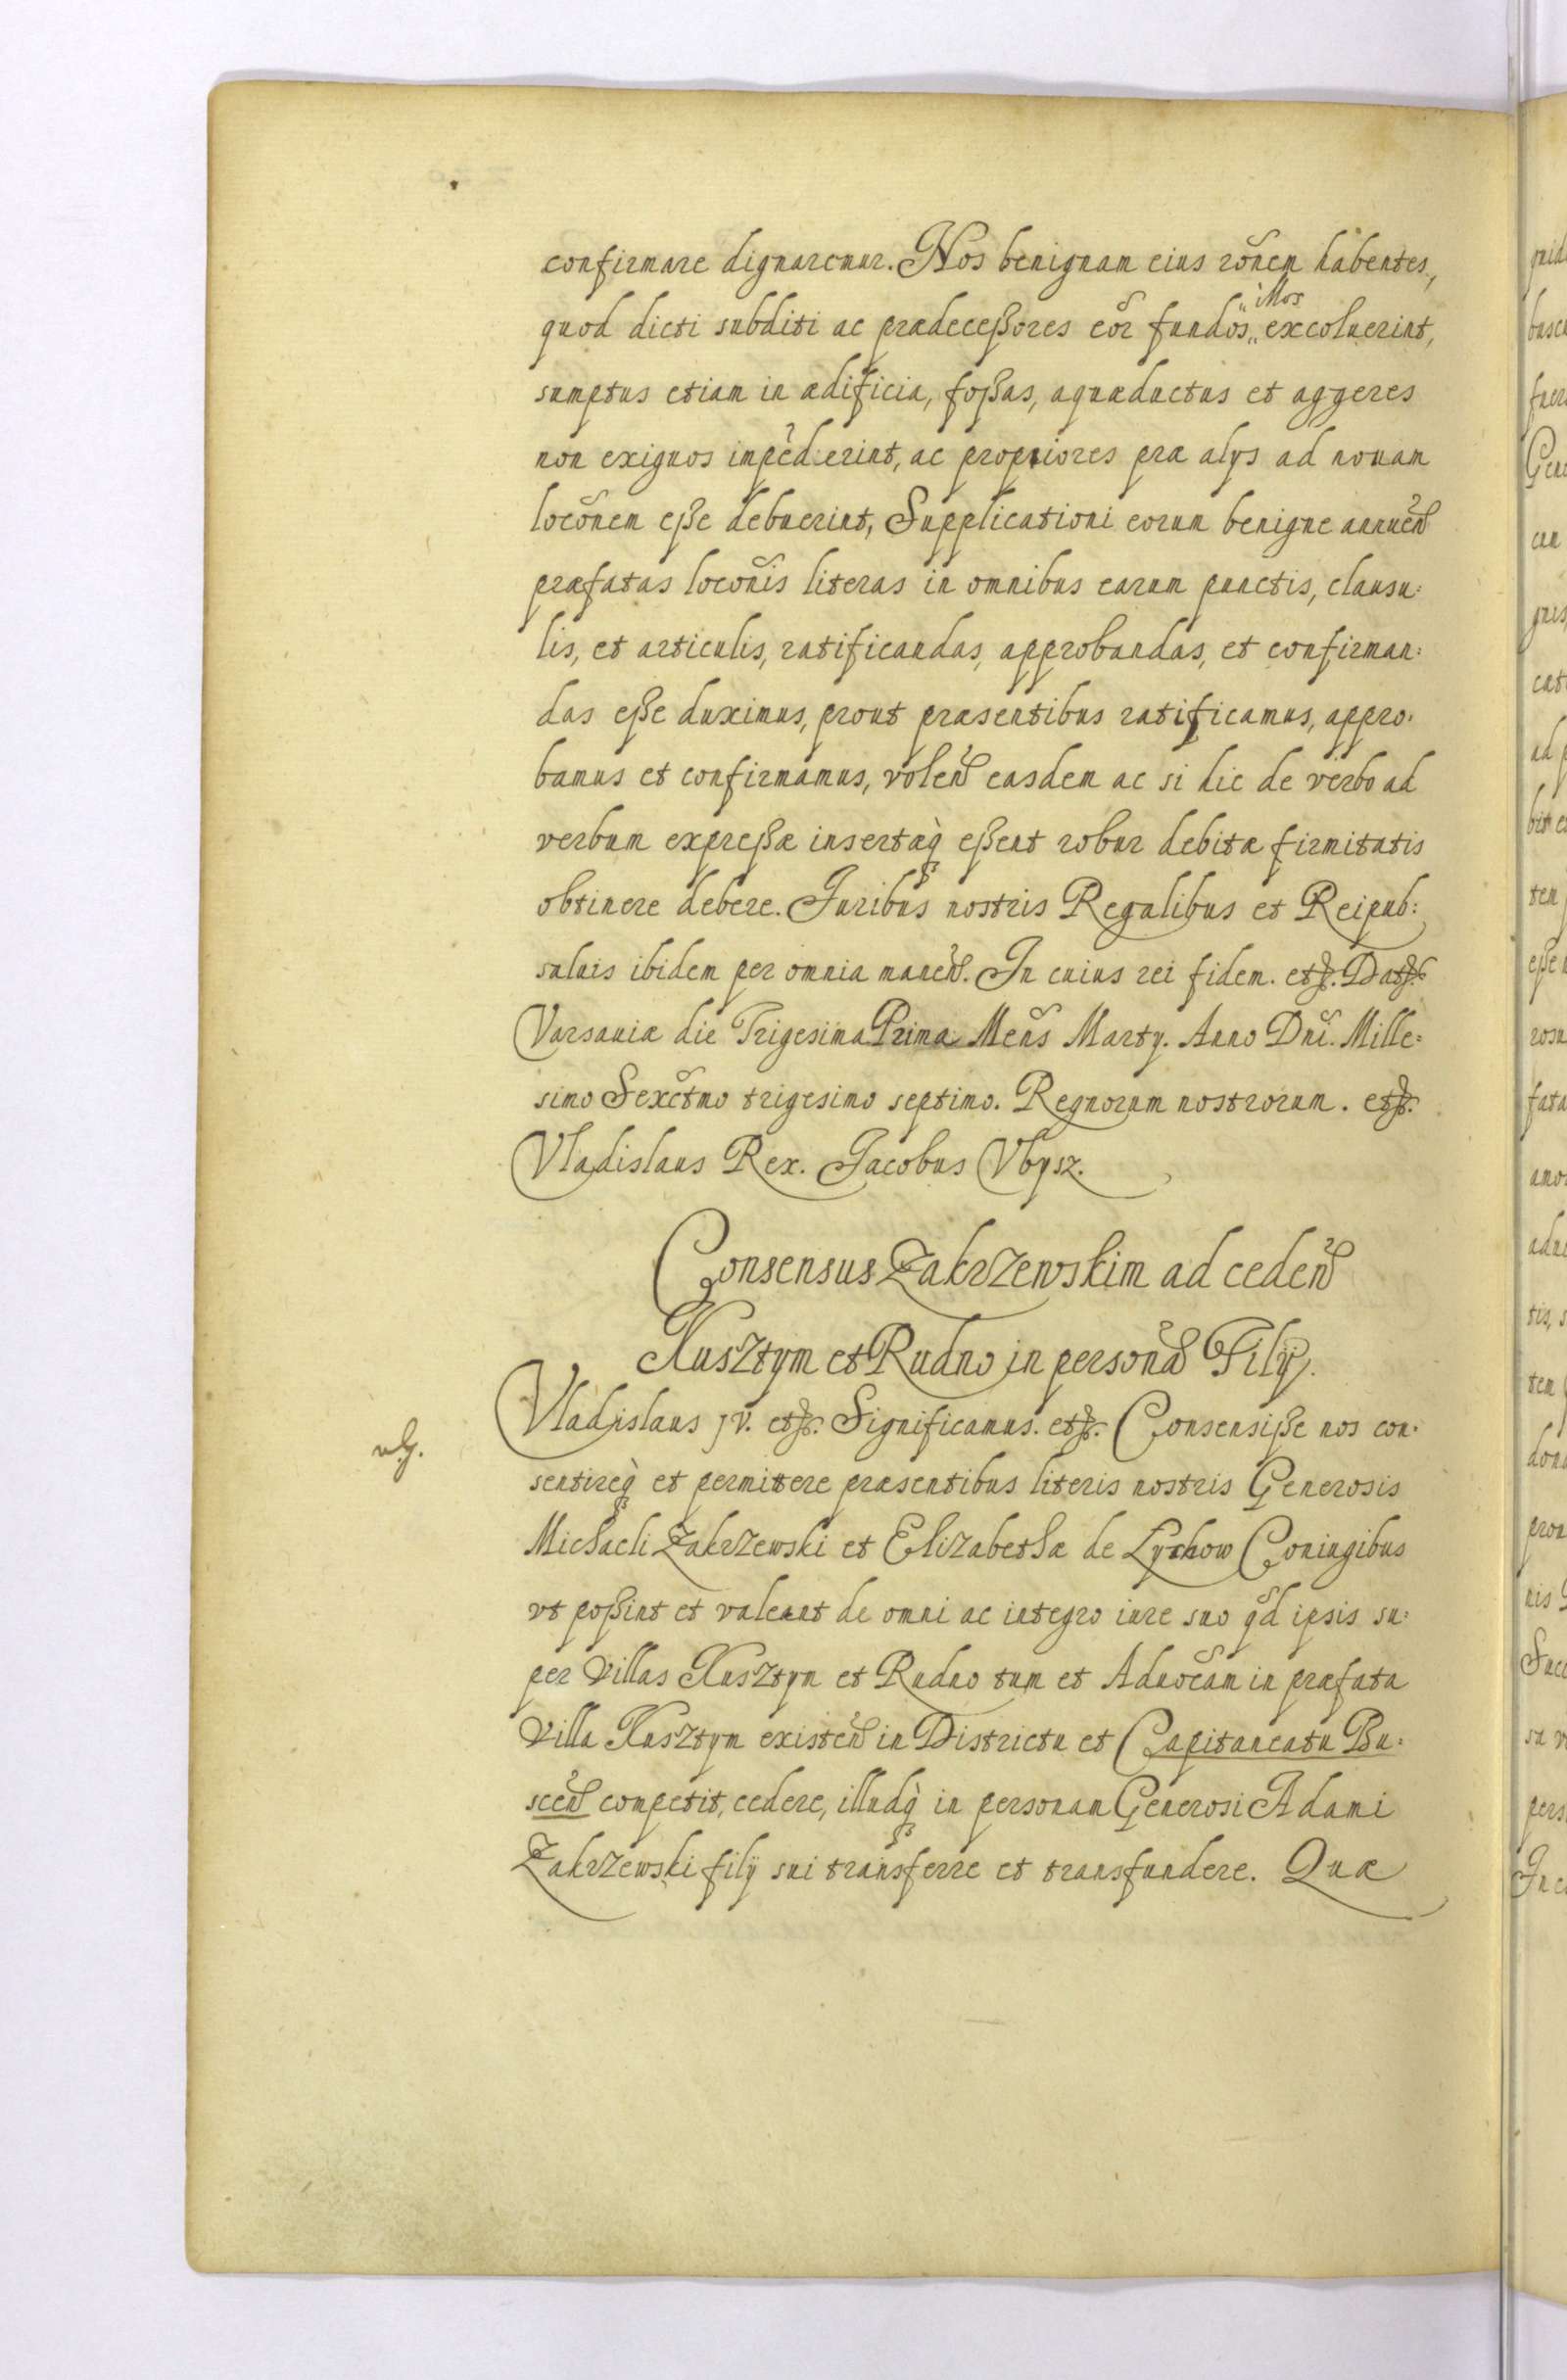 confirmare dignaremur. Nos benignam eius rõnem habentes,
quod dicti subditi ac prædeceßores eõr fundos illos excoluerint,
sumptus etiam in ædificia, foßas, aquæductus et aggeres
non exiguos impẽderint, ac propriores præ alys ad nouam
locõnem eße debuerint, Supplicationi eorum benigne annueñ
præfatas locõnis literas in omnibus earum punctis, clausu:
lis, et articulis, ratificandas, approbandas, et confirman:
das eße duximus, prout præsentibus ratificamus, appro:
bamus et confirmamus, voleñ easdem ac si hic de verbo ad
verbum expreßæ insertæq̀ eßent robur debitæ firmitatis
obtinere debere. Juribus nostris Regalibus et Reipub:
saluis ibidem per omnia maneñ. In cuius rei fidem. etc. Dat
Varsauiæ die Trigesima Prima Meñs Marty. Anno Dñi. Mille:
simo Sexctmo trigesimo septimo. Regnorum nostrorum. etc.
Vladislaus Rex. Jacobus Vbysz.
Consensus Zakrzewskim ad cedeñ
Kusztym et Rudno in personã Filÿ.
Vladislaus IV. etc. Significamus. etc. Consensiße nos con:
sentireq̀ et permittere præsentibus literis nostris Generosis
Michaeli Zakrzewski et Elizabethæ de Lychow Coniugibus
vt poßint et valeant de omni ac integro iure suo qd ipsis su:
per villas Kusztyn et Rudno tum et Aduocãm in præfata
villa Kusztym existeñ in Districtu et Capitaneatu Bu:
sceñ competit, cedere, illudq̀ in personam Generosi Adami
Zakrzewski filÿ sui transferre et transfundere. Quæ